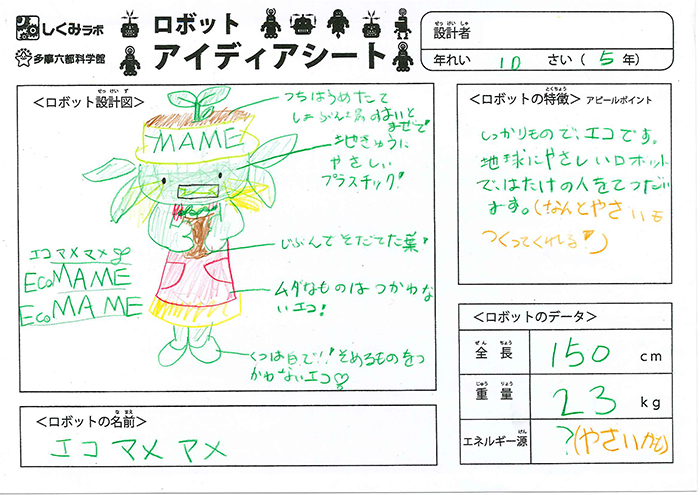 しくみラボ
多摩六都科学館
ロボット
アイディアシート
設計者
せっけいしゃ
年れい 10 さい( 5 年)
<ロボット設計図>
せっけいず
つちはうめたて
地きゅうに
やさしい
プラスチック!
MAME
エコマメマメ
EcoMAME
EcoMAME
じぶんでそだてた葉
ムダなものはつかわな
いエコ!
くつは白で!!そめるものをつ
かわないエコ♡
<ロボットの名前>
なまえ
エコマメマメ
<ロボットの特徴> アピールポイント
とくちょう
しっかりもので、エコです。
地球にやさしいロボット
で、はたけの人をてつだい
ます。(なんとやさいも
つくってくれる
<ロボットのデータ>
ぜんちょう
全長 150 cm
じゅうりょう
重量 23 kg
げん
エネルギー源 ?(やさいかも)